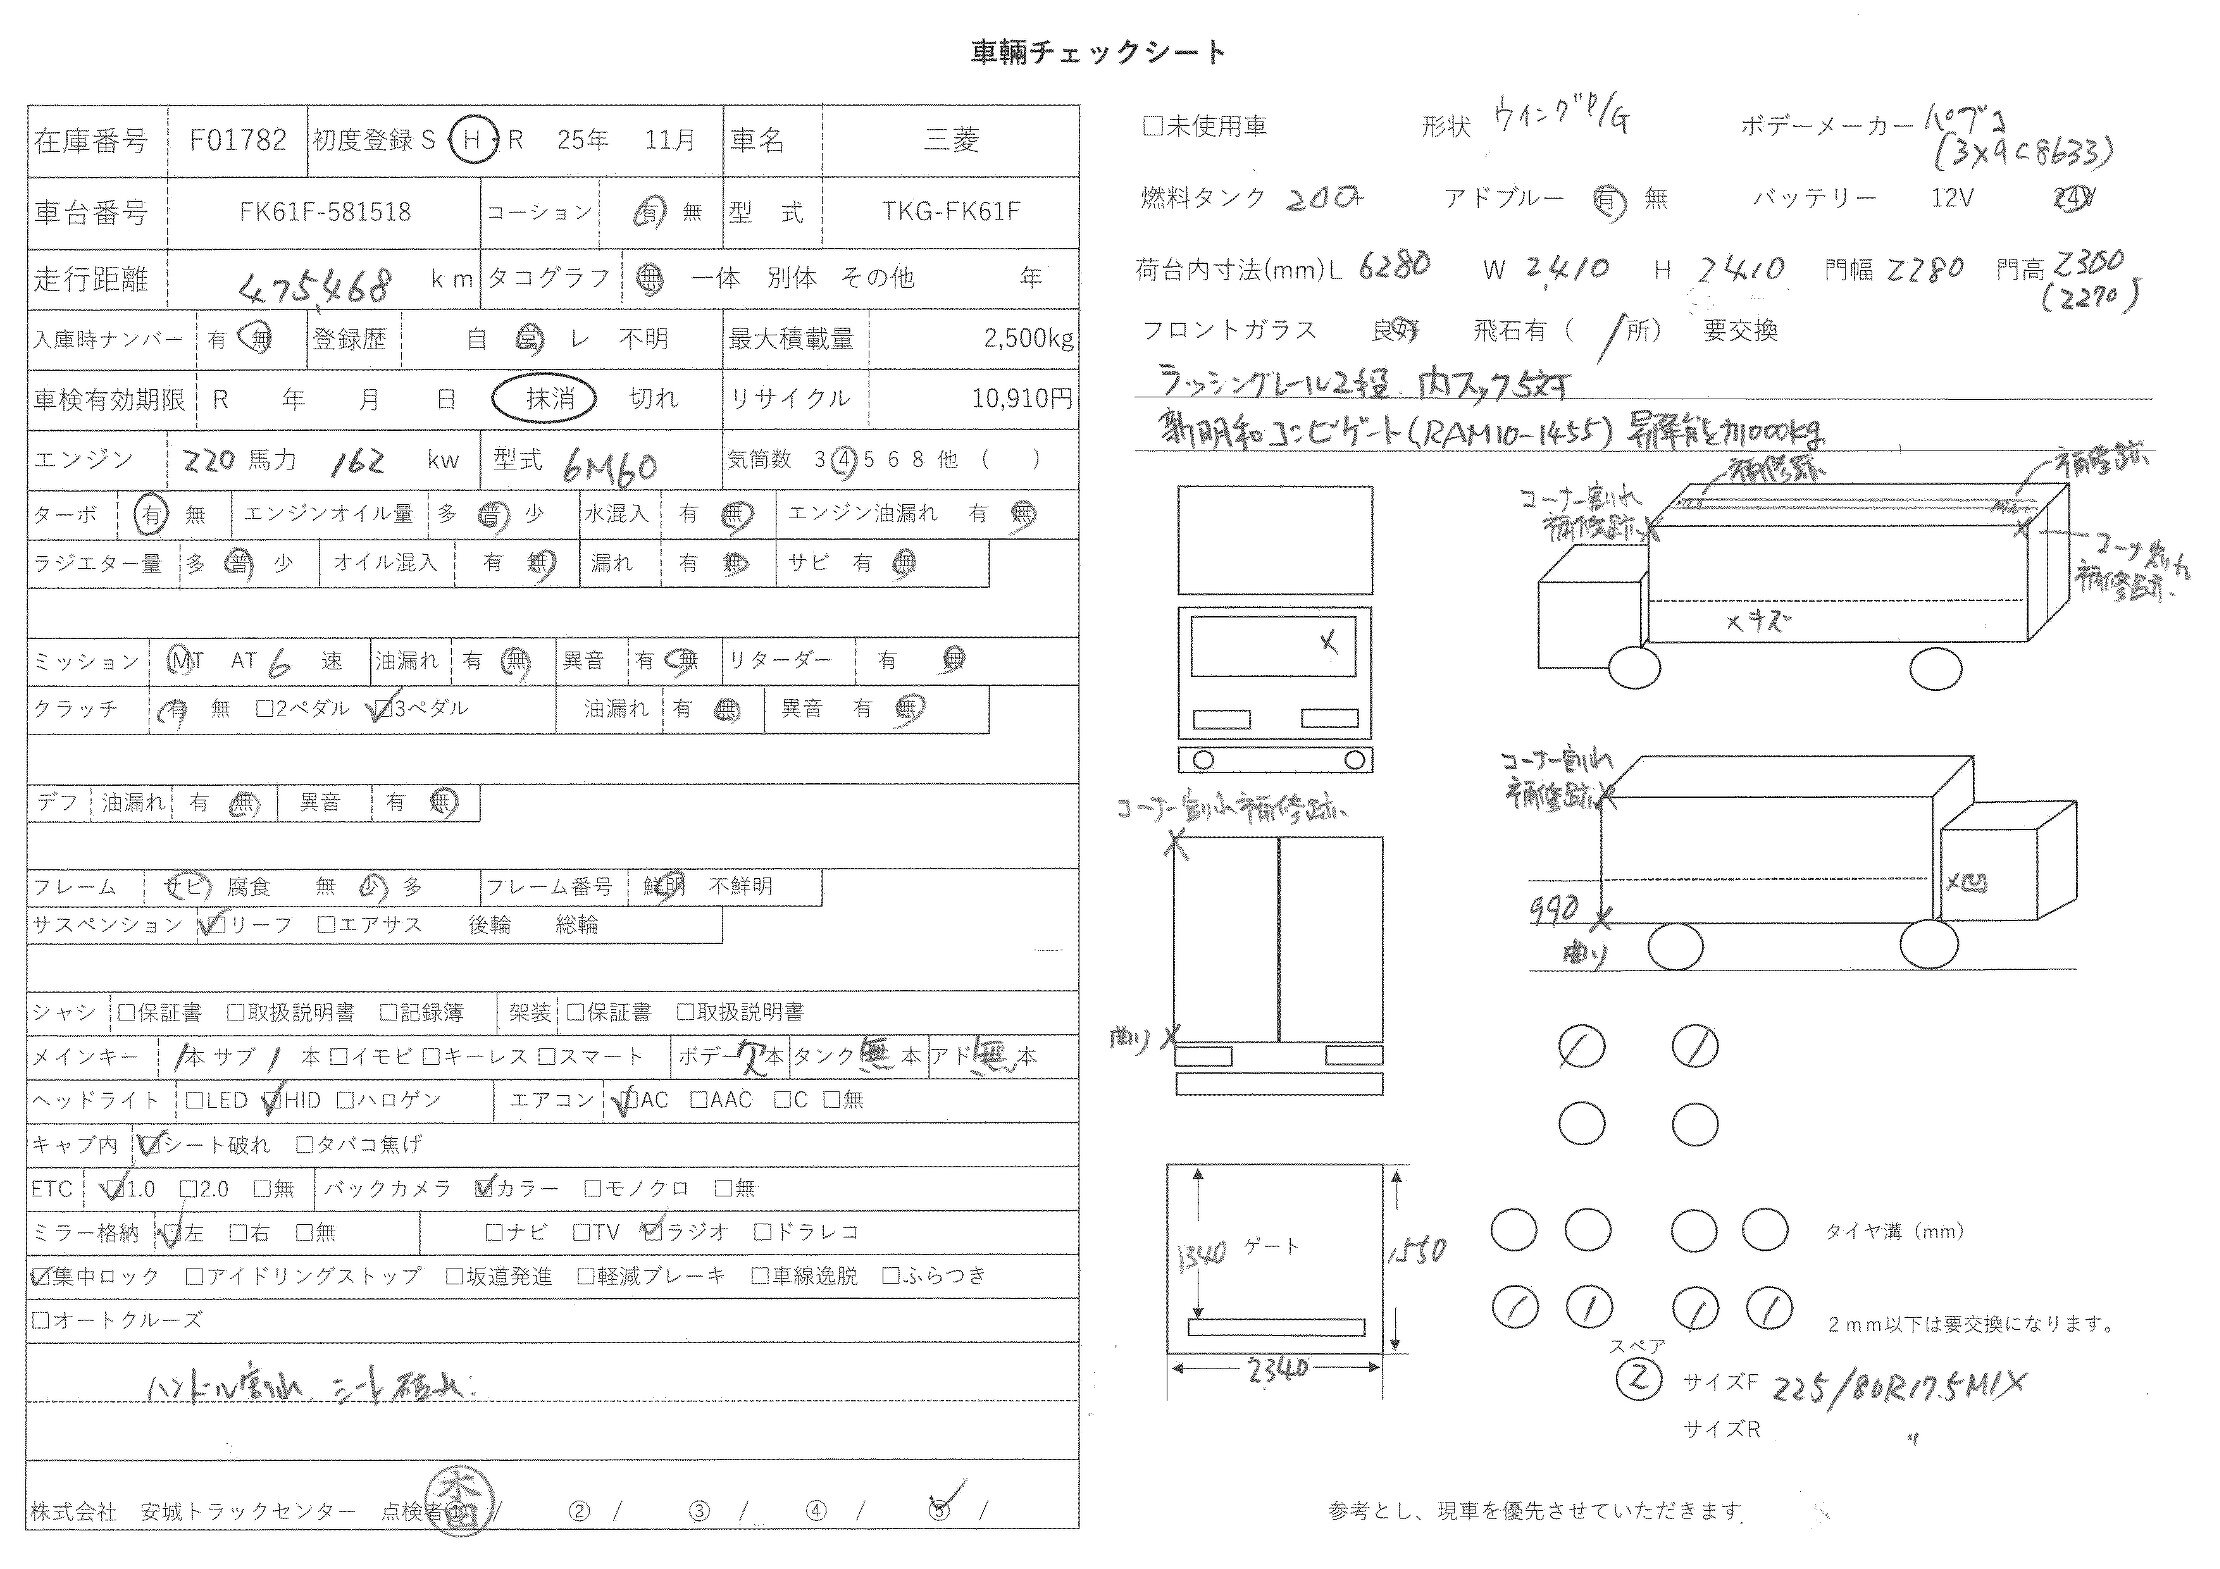 車輛チェックシート
在庫番号 F01782 初度登録 S・H・R 25年 11月 車名 三菱
車台番号 FK61F-581518 コーション 有 無 型 式 TKG-FK61F
走行距離 475,468 km タコグラフ 無 一体 別体 その他 年
入庫時ナンバー 有 無 登録歴 自 営 レ 不明 最大積載量 2,500kg
車検有効期限 R 年 月 日 抹消 切れ リサイクル 10,910円
エンジン 220 馬力 162 kw 型式 6M60 気筒数 3 4 5 6 8 他 ( )
ターボ 有 無 エンジンオイル量 多 普 少 水混入 有 無 エンジン油漏れ 有 無
ラジエター量 多 普 少 オイル混入 有 無 漏れ 有 無 サビ 有 無
ミッション MT AT 6 速 油漏れ 有 無 異音 有 無 リターダー 有 無
クラッチ 有 無 □2ペダル ☑3ペダル 油漏れ 有 無 異音 有 無
デフ 油漏れ 有 無 異音 有 無
フレーム サビ 腐食 無 少 多 フレーム番号 鮮明 不鮮明
サスペンション ☑リーフ □エアサス 後輪 総輪
シャシ □保証書 □取扱説明書 □記録簿 架装 □保証書 □取扱説明書
メインキー 1本 サブ 1 本 □イモビ □キーレス □スマート ボデー欠本 タンク無本 アド無本
ヘッドライト □LED ☑HID □ハロゲン エアコン ☑AC □AAC □C □無
キャブ内 ☑シート破れ □タバコ焦げ
ETC ☑1.0 □2.0 □無 バックカメラ ☑カラー □モノクロ □無
ミラー格納 ☑左 □右 □無 □ナビ □TV ☑ラジオ □ドラレコ
☑集中ロック □アイドリングストップ □坂道発進 □軽減ブレーキ □車線逸脱 □ふらつき
□オートクルーズ
ハンドル割れ、シート破れ
株式会社 安城トラックセンター 点検者① / ② / ③ / ④ / ⑤ /
□未使用車 形状 ウイングP/G ボデーメーカー パブコ
(3X9C8633)
燃料タンク 200ℓ アドブルー 有 無 バッテリー 12V 24V
荷台内寸法(mm) L 6280 W 2410 H 2410 門幅 2280 門高 2300
(2270)
フロントガラス 良好 飛石有 ( / 所) 要交換
ラッシングレール2段 内フック5対
新明和コンビゲート(RAM10-1455) 昇降能力1000kg
補修跡 補修跡
コーナー割れ
補修跡
コーナー割れ
補修跡
×キズ
コーナー割れ
補修跡
×凹
990
曲り
コーナー割れ補修跡
曲り
1340 ゲート 1550
2340
タイヤ溝(mm)
2mm以下は要交換になります。
スペア
2 サイズF 225/80R17.5MIX
サイズR 〃
参考とし、現車を優先させていただきます